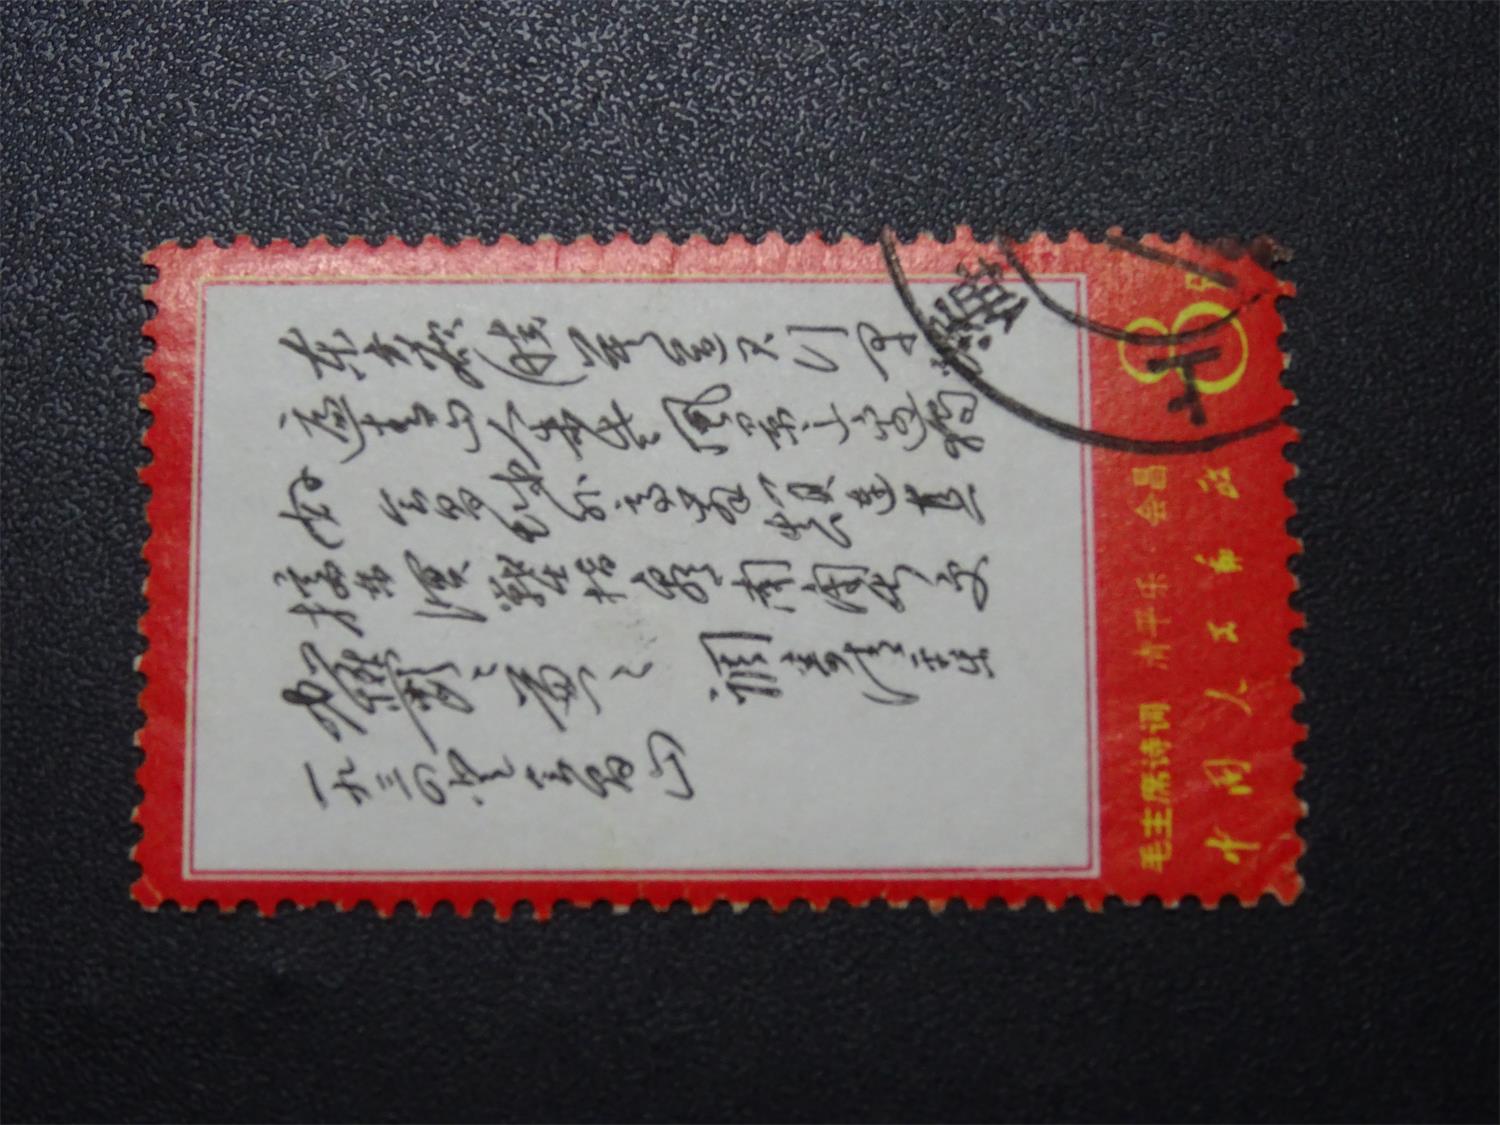 东方欲晓莫道君行早踏
遍青山人未老风景这边独
好会昌城外高峰颠连直
接东溟战士指看南粤更
加郁郁葱葱 调寄清平乐
一九三四年登会昌山
毛主席诗词 清平乐·会昌
中国人民邮政
8分